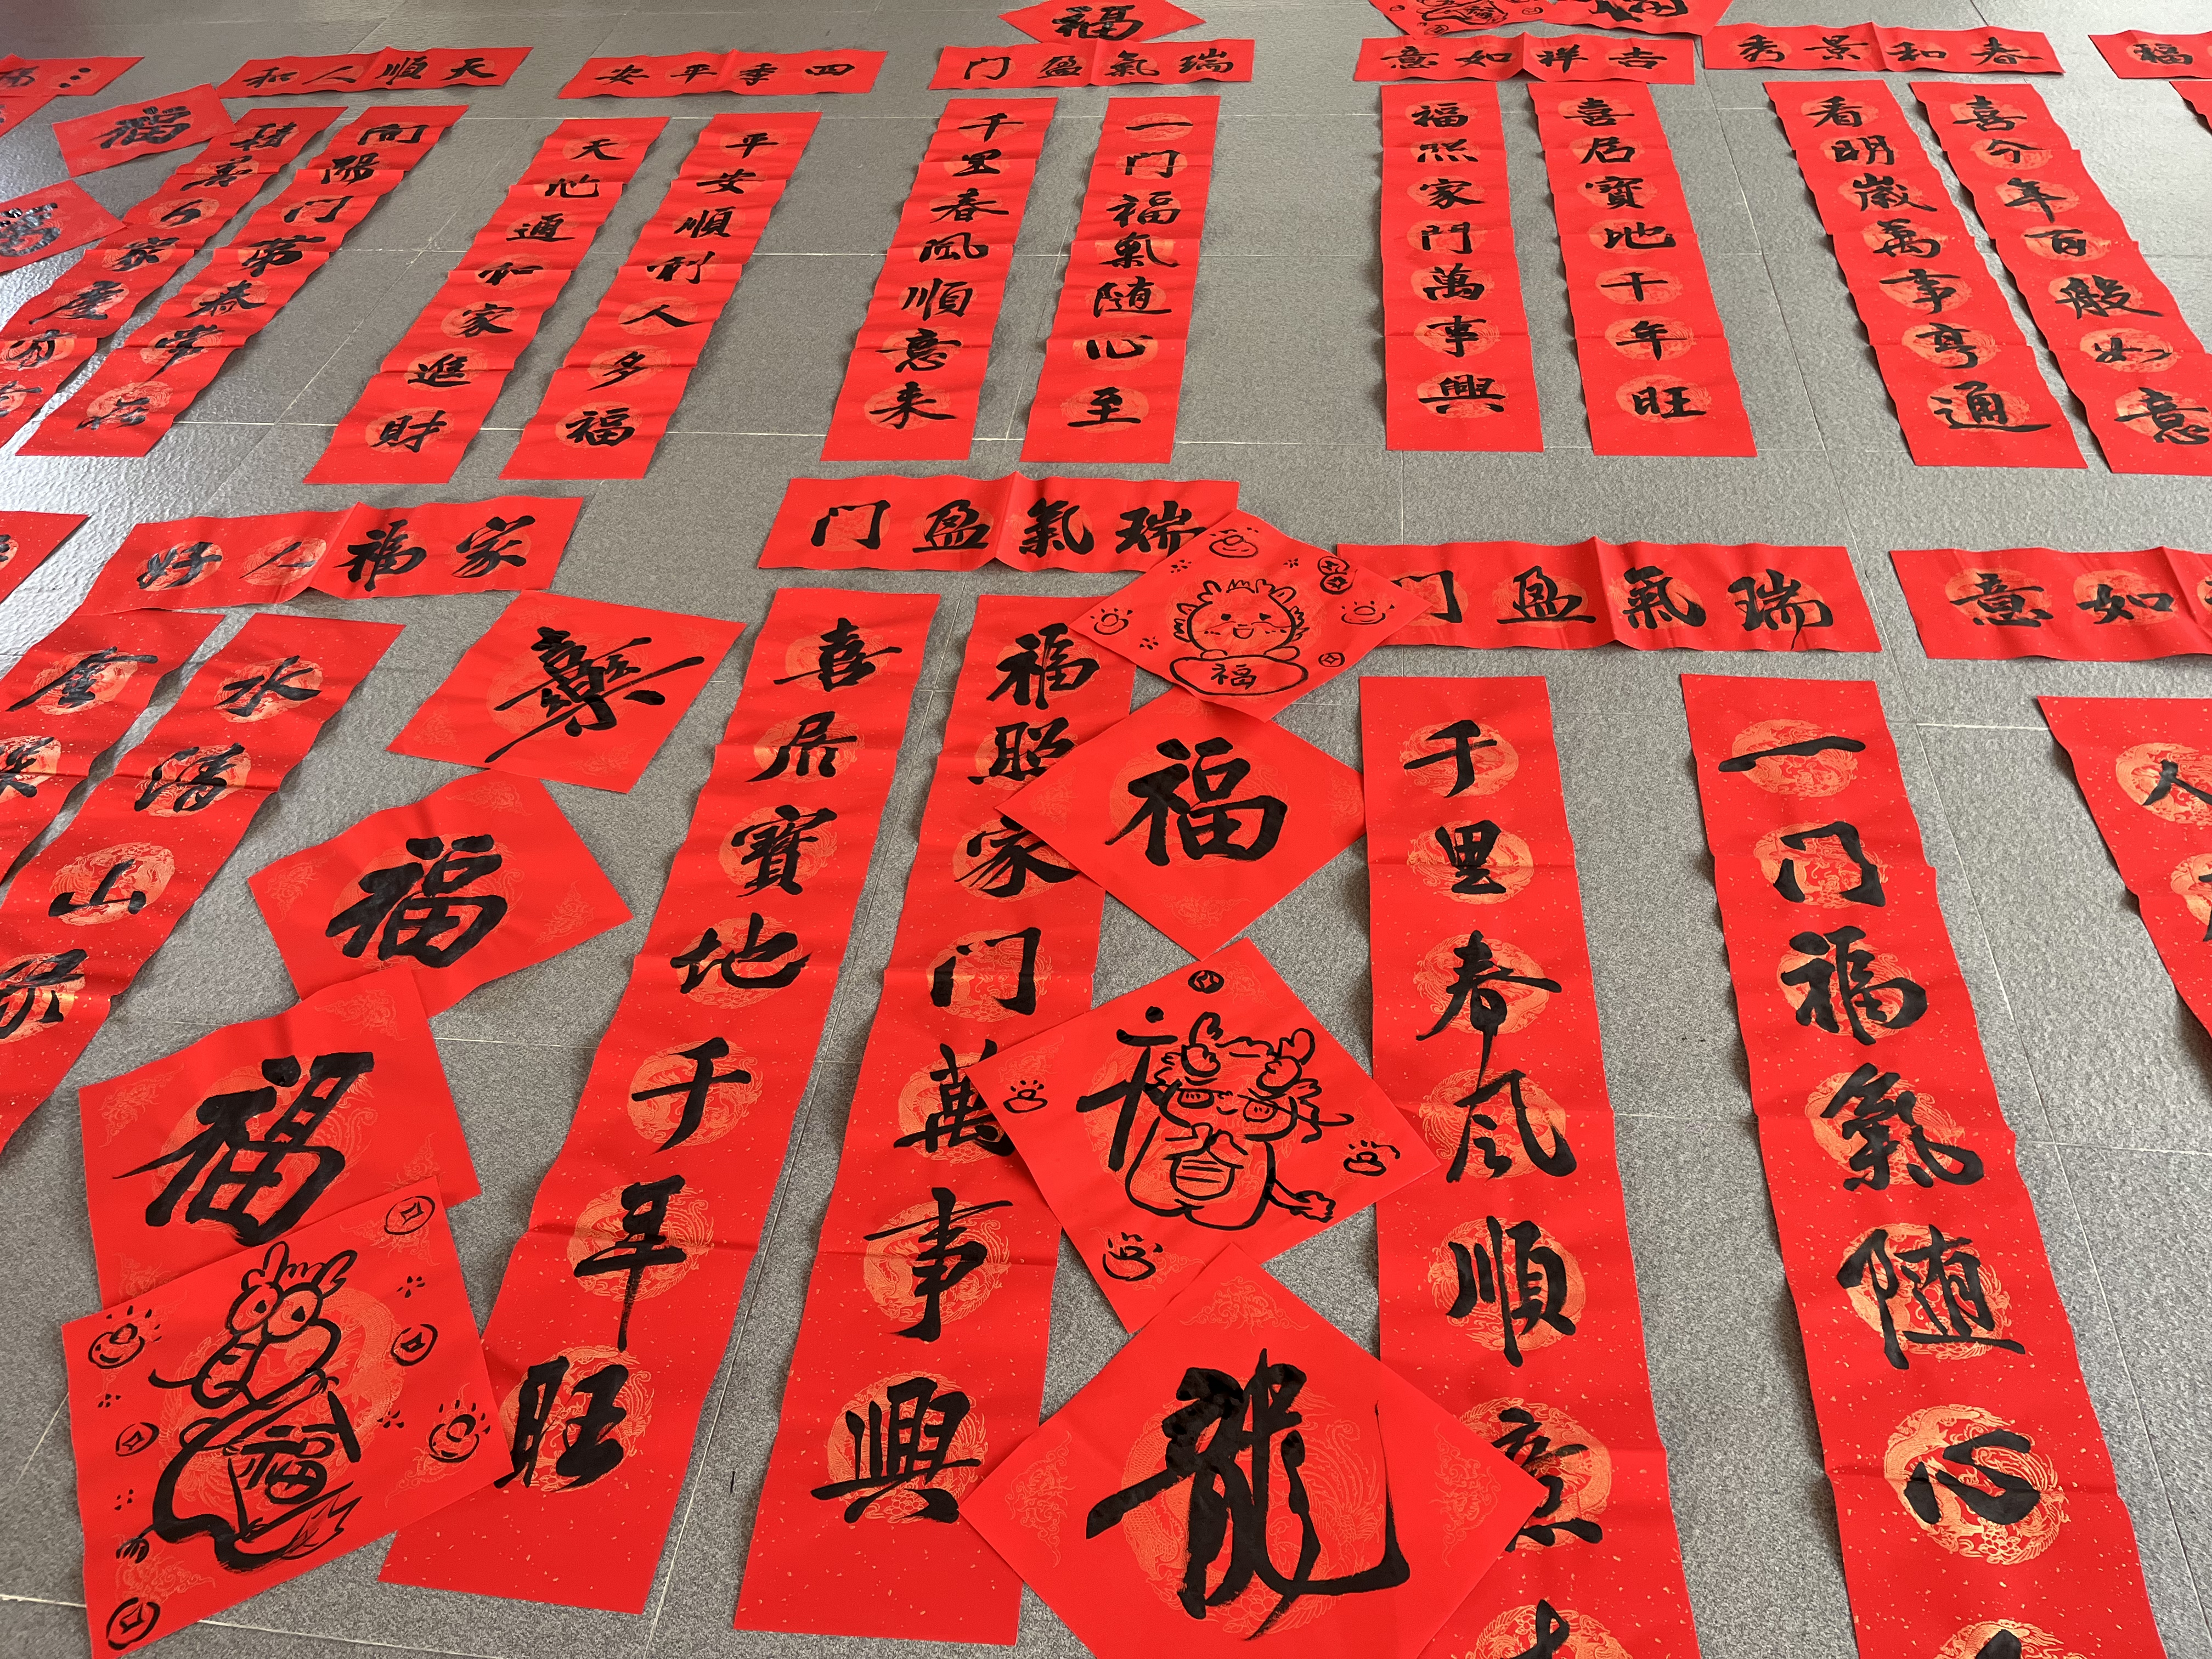 福
天順人和
四季平安
瑞氣盈门
吉祥如意
春和景秀
福
福
向陽门第春常在
積善人家慶有
平安順利人多福
天地通和家進財
一门福氣随心至
千里春風順意来
喜居寶地千年旺
福照家門萬事興
喜今年百般如意
看明歲萬事亨通
家福人好
瑞氣盈门
瑞氣盈门
如意
水清山
樂
福
福
福
喜居寶地千年旺
福照家门萬事興
福
福
龍
一门福氣随心
千里春风順意
人